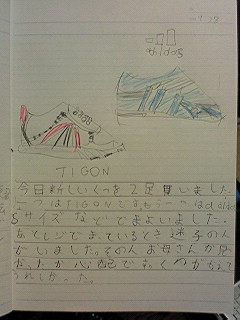 7.29
adidas
TIGON
今日新しいくつを2足買いました。
一つはTIGONですもう一つはadidas
Sサイズなでまよいました。
なとレジでまっているとき迷子の人
がいました。その人お母さんが見
か たか心配で
うれしかった。